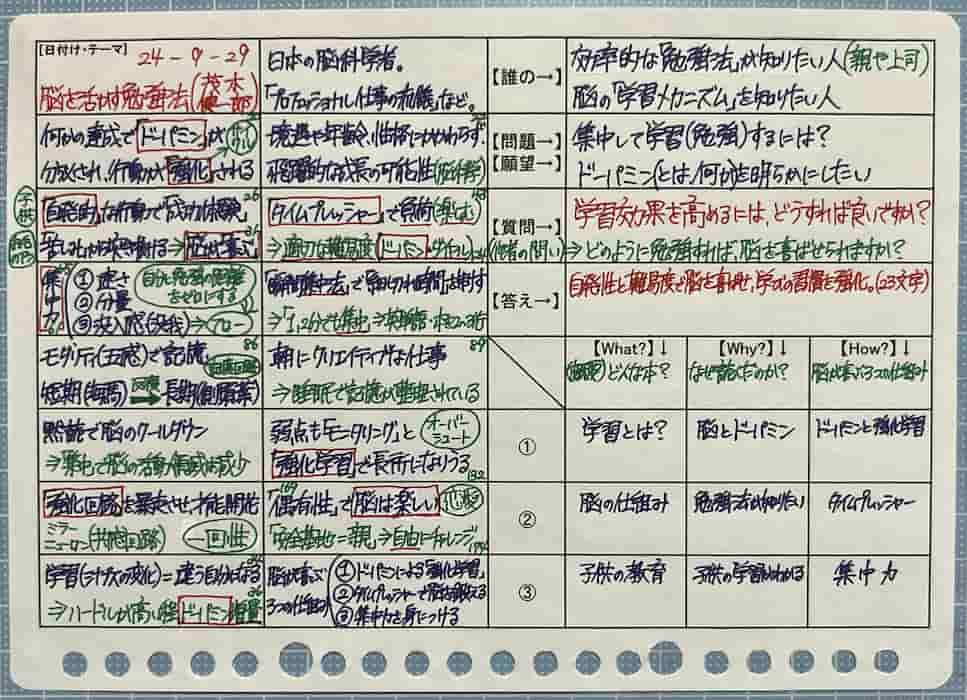 【日付け・テーマ】
24-9-29
脳を活かす勉強法(茂木健一郎)
日本の脳科学者。
「プロフェッショナル仕事の流儀」など。
【誰の→】
効率的な「勉強法」が知りたい人(親や上司)
脳の「学習メカニズム」を知りたい人
何かの達成で「ドーパミン」が
分泌され、行動が「強化」される
境遇や年齢、性格にかかわらず、
飛躍的な成長の可能性(脳科学)
【問題→】
【願望→】
集中して学習(勉強)するには?
ドーパミンとは、何かを明らかにしたい
子供
「自発的」な行動で「成功体験」
苦しむから突き抜ける⇒「脳は喜ぶ」
「タイムプレッシャー」で負荷(楽しむ)
⇒適切な難易度
【質問→】
学習効果を高めるには、どうすれば良いですか?
(他者の問い)⇒どのように勉強すれば、脳を喜ばせられますか?
集中力
①速さ
②分量
③没入感(没我)⇒フロー
自分と勉強の距離をゼロにする
「瞬間集中法」で「細切れ時間」を増す
⇒「1、2分でも集中」⇒英単語・
【答え→】
自発性と難易度で脳を喜ばせ、学びの習慣を強化。(23文字)
モダリティ(五感)で記憶
86
短期(海馬)⇒長期(側頭葉)
朝にクリエイティブな仕事
89
⇒睡眠で記憶が整理されている
【What?】↓
(概要)どんな本?
【Why?】↓
なぜ読んだのか?
【How?】↓
脳が喜ぶ3つの仕組み
黙読で脳のクールダウン
⇒集中で脳の活動領域は減少
弱点も「モニタリング」と
オーバーシュート
「強化学習」で長所になりうる
132
①
学習とは?
脳とドーパミン
ドーパミンと強化学習
強化回路を暴走させ、才能開花
ミラーニューロン(共感回路)
一回性
169
「偶有性」で「脳は楽しい」
「安全基地」=親、⇒自由にチャレンジ
②
脳の仕組み
勉強法が知りたい
タイムプレッシャー
学習(シナプスの変化)=違う自分になる
⇒ハードルが高い程ドーパミン増量
脳が喜ぶ3つの仕組み
①ドーパミンによる「強化学習」
②タイムプレッシャーで脳を鍛える
③集中力を身につける
③
子供の教育
子供の学習がわかる
集中力